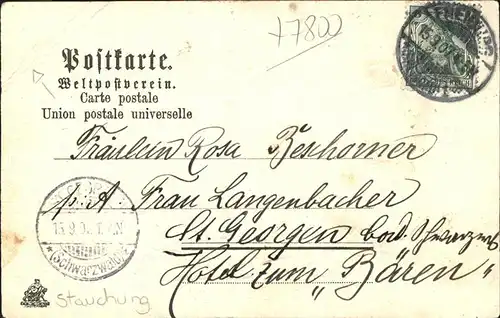 +7800
Postkarte.
Weltpostverein.
Carte postale
Union postale universelle
Fräulein Rosa Beshorner
p. A. Frau Langenbacher
St. Georgen bad. Schwarzw.
Hotel zum „Bären"
(Schwarzwald)
Stauchung